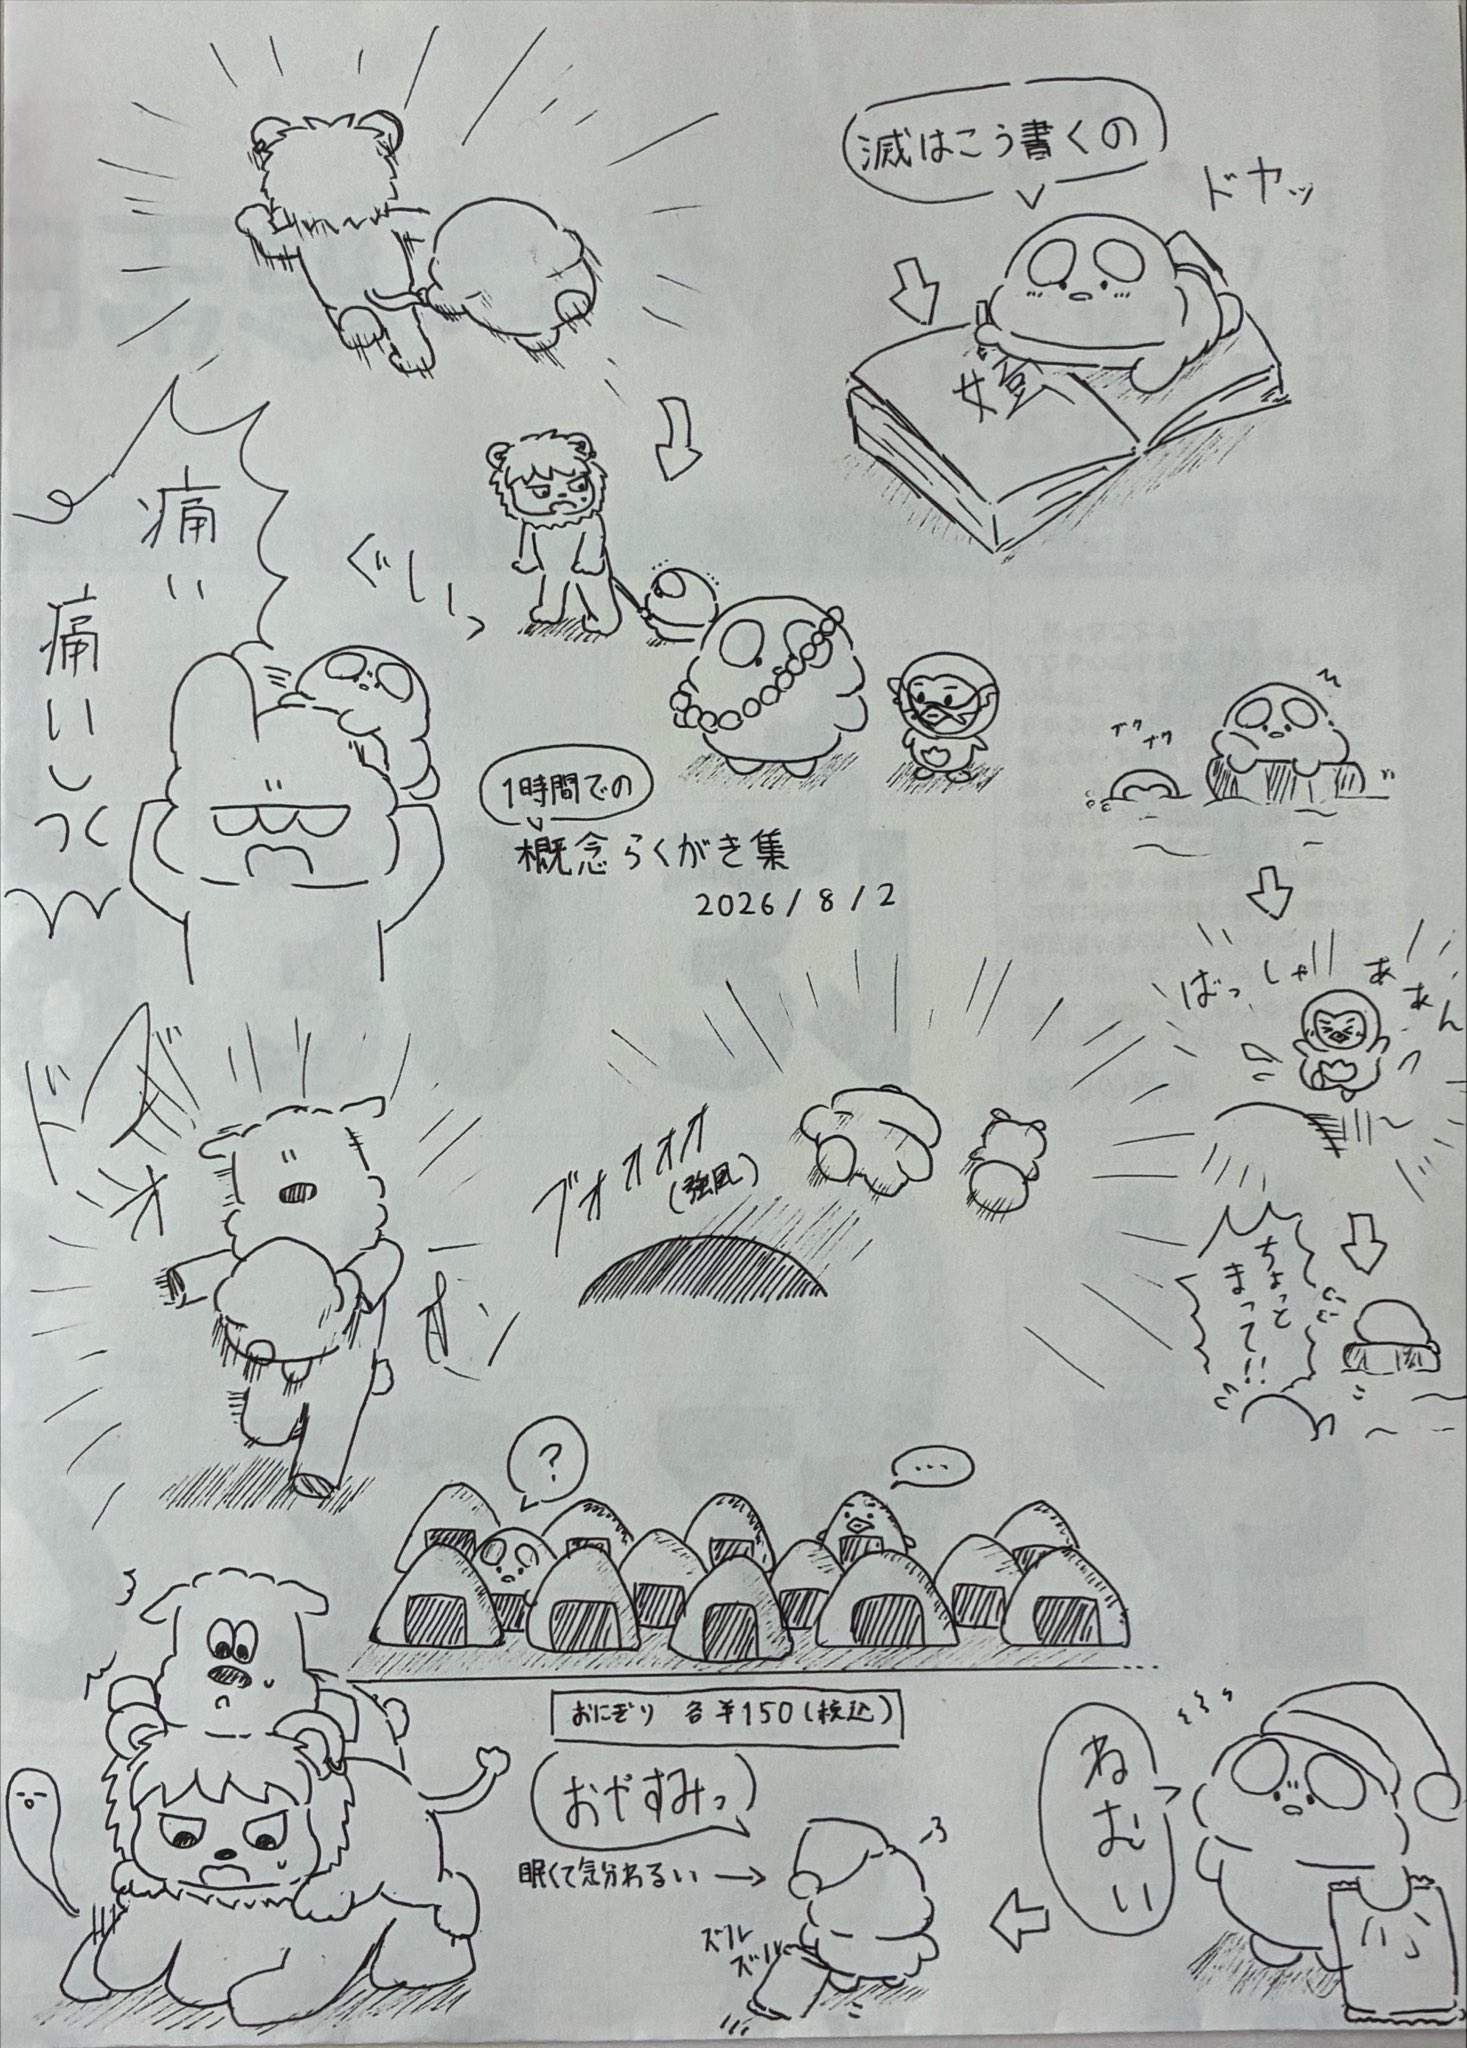 滅はこう書くの
ドヤッ
痛い
痛いしっ
ぐいーっ
1時間での
概念らくがき集
2026/8/2
ばっしゃ
ああん
ブオオオオ
(強風)
ちょっと
まって!!
?
...
おにぎり 各¥150(税込)
おやすみっ
眠くて気分わるい→
ズル
ズル
ねむい